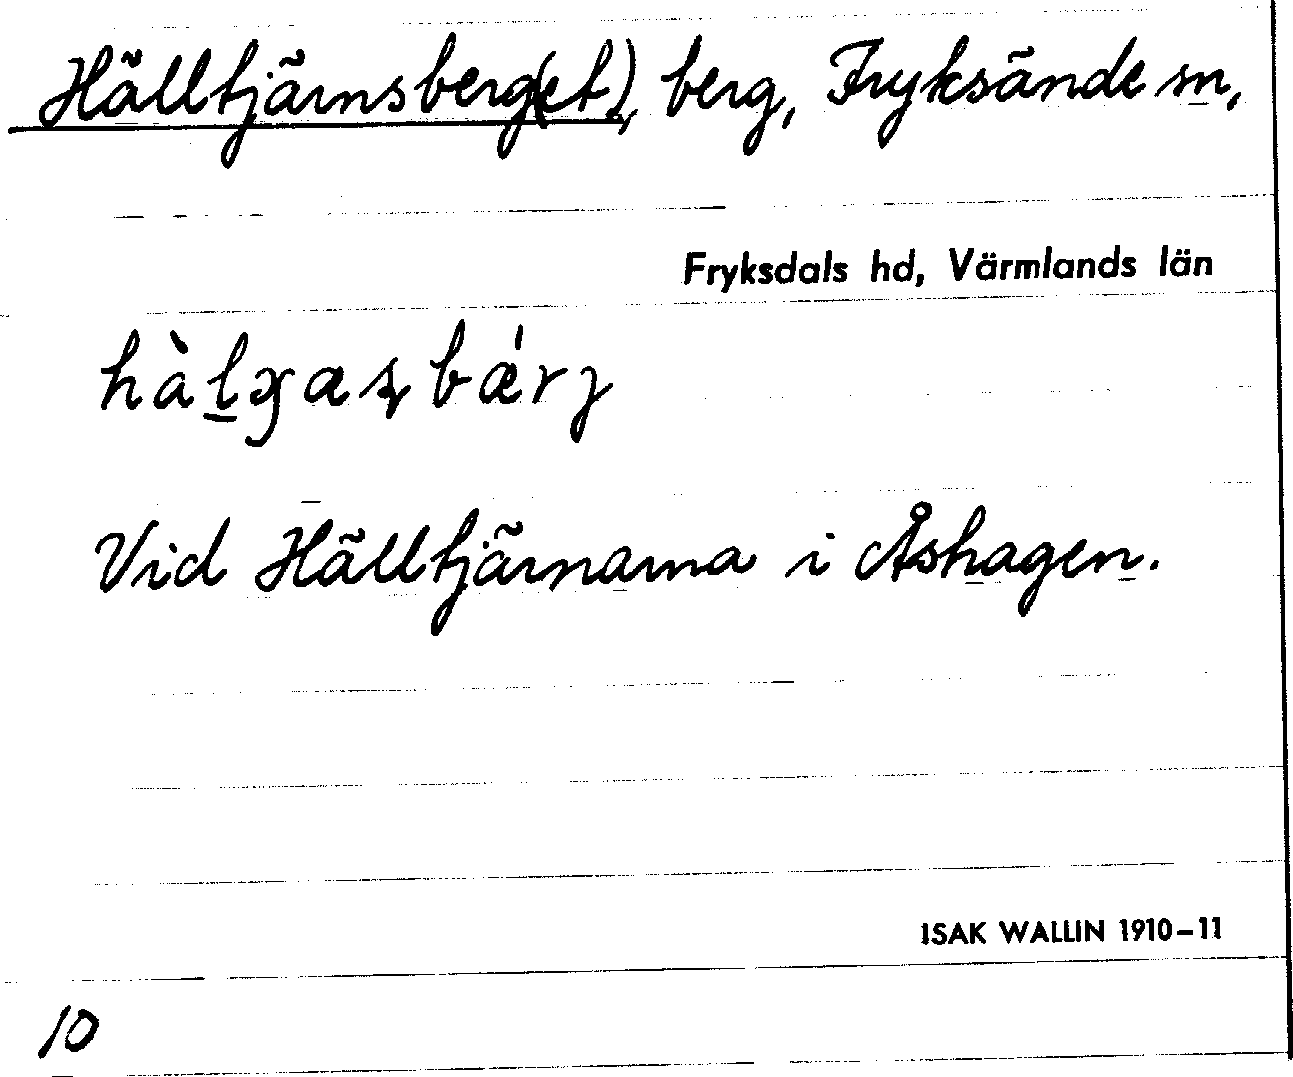 Hälltjärnsberg(et), berg, Fryksände sn,
Fryksdals hd, Värmlands län
Vid Hälltjärnarna i Åshagen.
ISAK WALLIN 1910–11
10